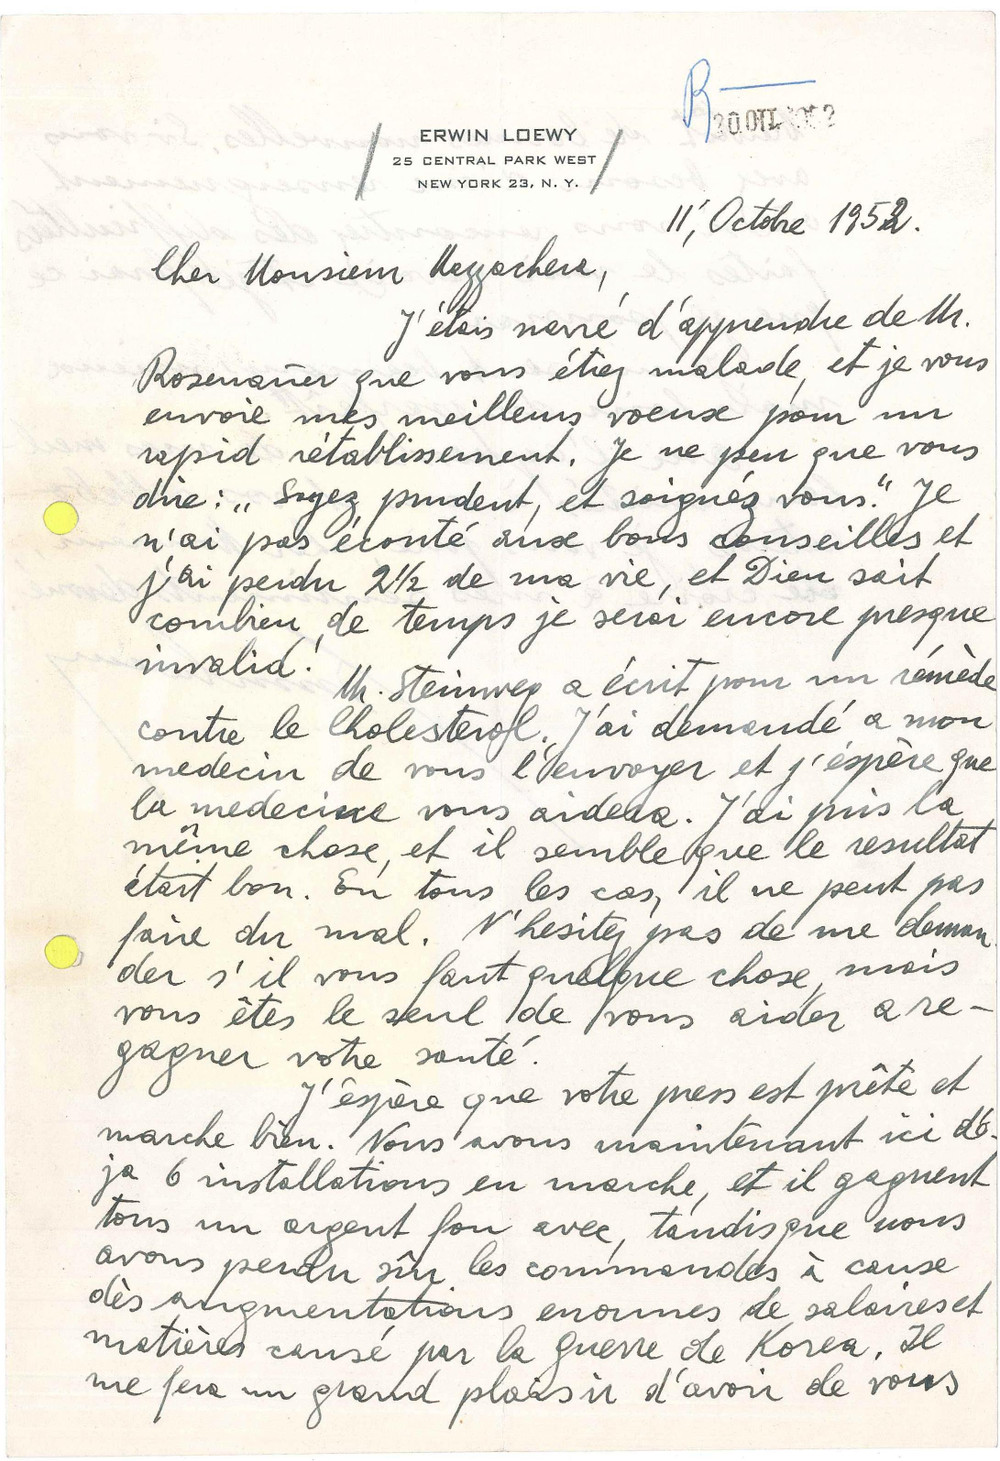 R
20 OTT 1952
ERWIN LOEWY
25 CENTRAL PARK WEST
NEW YORK 23, N. Y.
11, Octobre 1952.
Cher Monsieur Mazzochera,
J'étais navré d'apprendre de Mr.
Rosenauer que vous étiez malade, et je vous
envoie mes meilleurs voeux pour un
rapid rétablissement. Je ne peu que vous
dire: „ Soyez prudent, et soignés vous." Je
n'ai pas écouté aux bons conseilles et
j'ai perdu 2½ de ma vie, et Dieu sait
combien de temps je serai encore presque
invalid!
Mr. Steinweg a écrit pour un rémède
contre le Cholesterol. J'ai demandé a mon
medecin de vous l'envoyer et j'éspère que
la medecine vous aidera. J'ai pris la
même chose, et il semble que le resultat
était bon. En tous les cas, il ne peut pas
faire du mal. N'hesitez pas de me deman-
der s'il vous faut quelque chose, mais
vous êtes le seul de vous aider a re-
gagner votre santé.
J'éspère que votre press est prête et
marche bien. Nous avons maintenant ici dé-
ja 6 installations en marche, et il gagnent
tous un argent fou avec, tandisque nous
avons perdu sûr les commandes à cause
dès augmentations enormes de salaires et
matières causé par la guerre de Korea. Il
me fera un grand plaisir d'avoir de vous